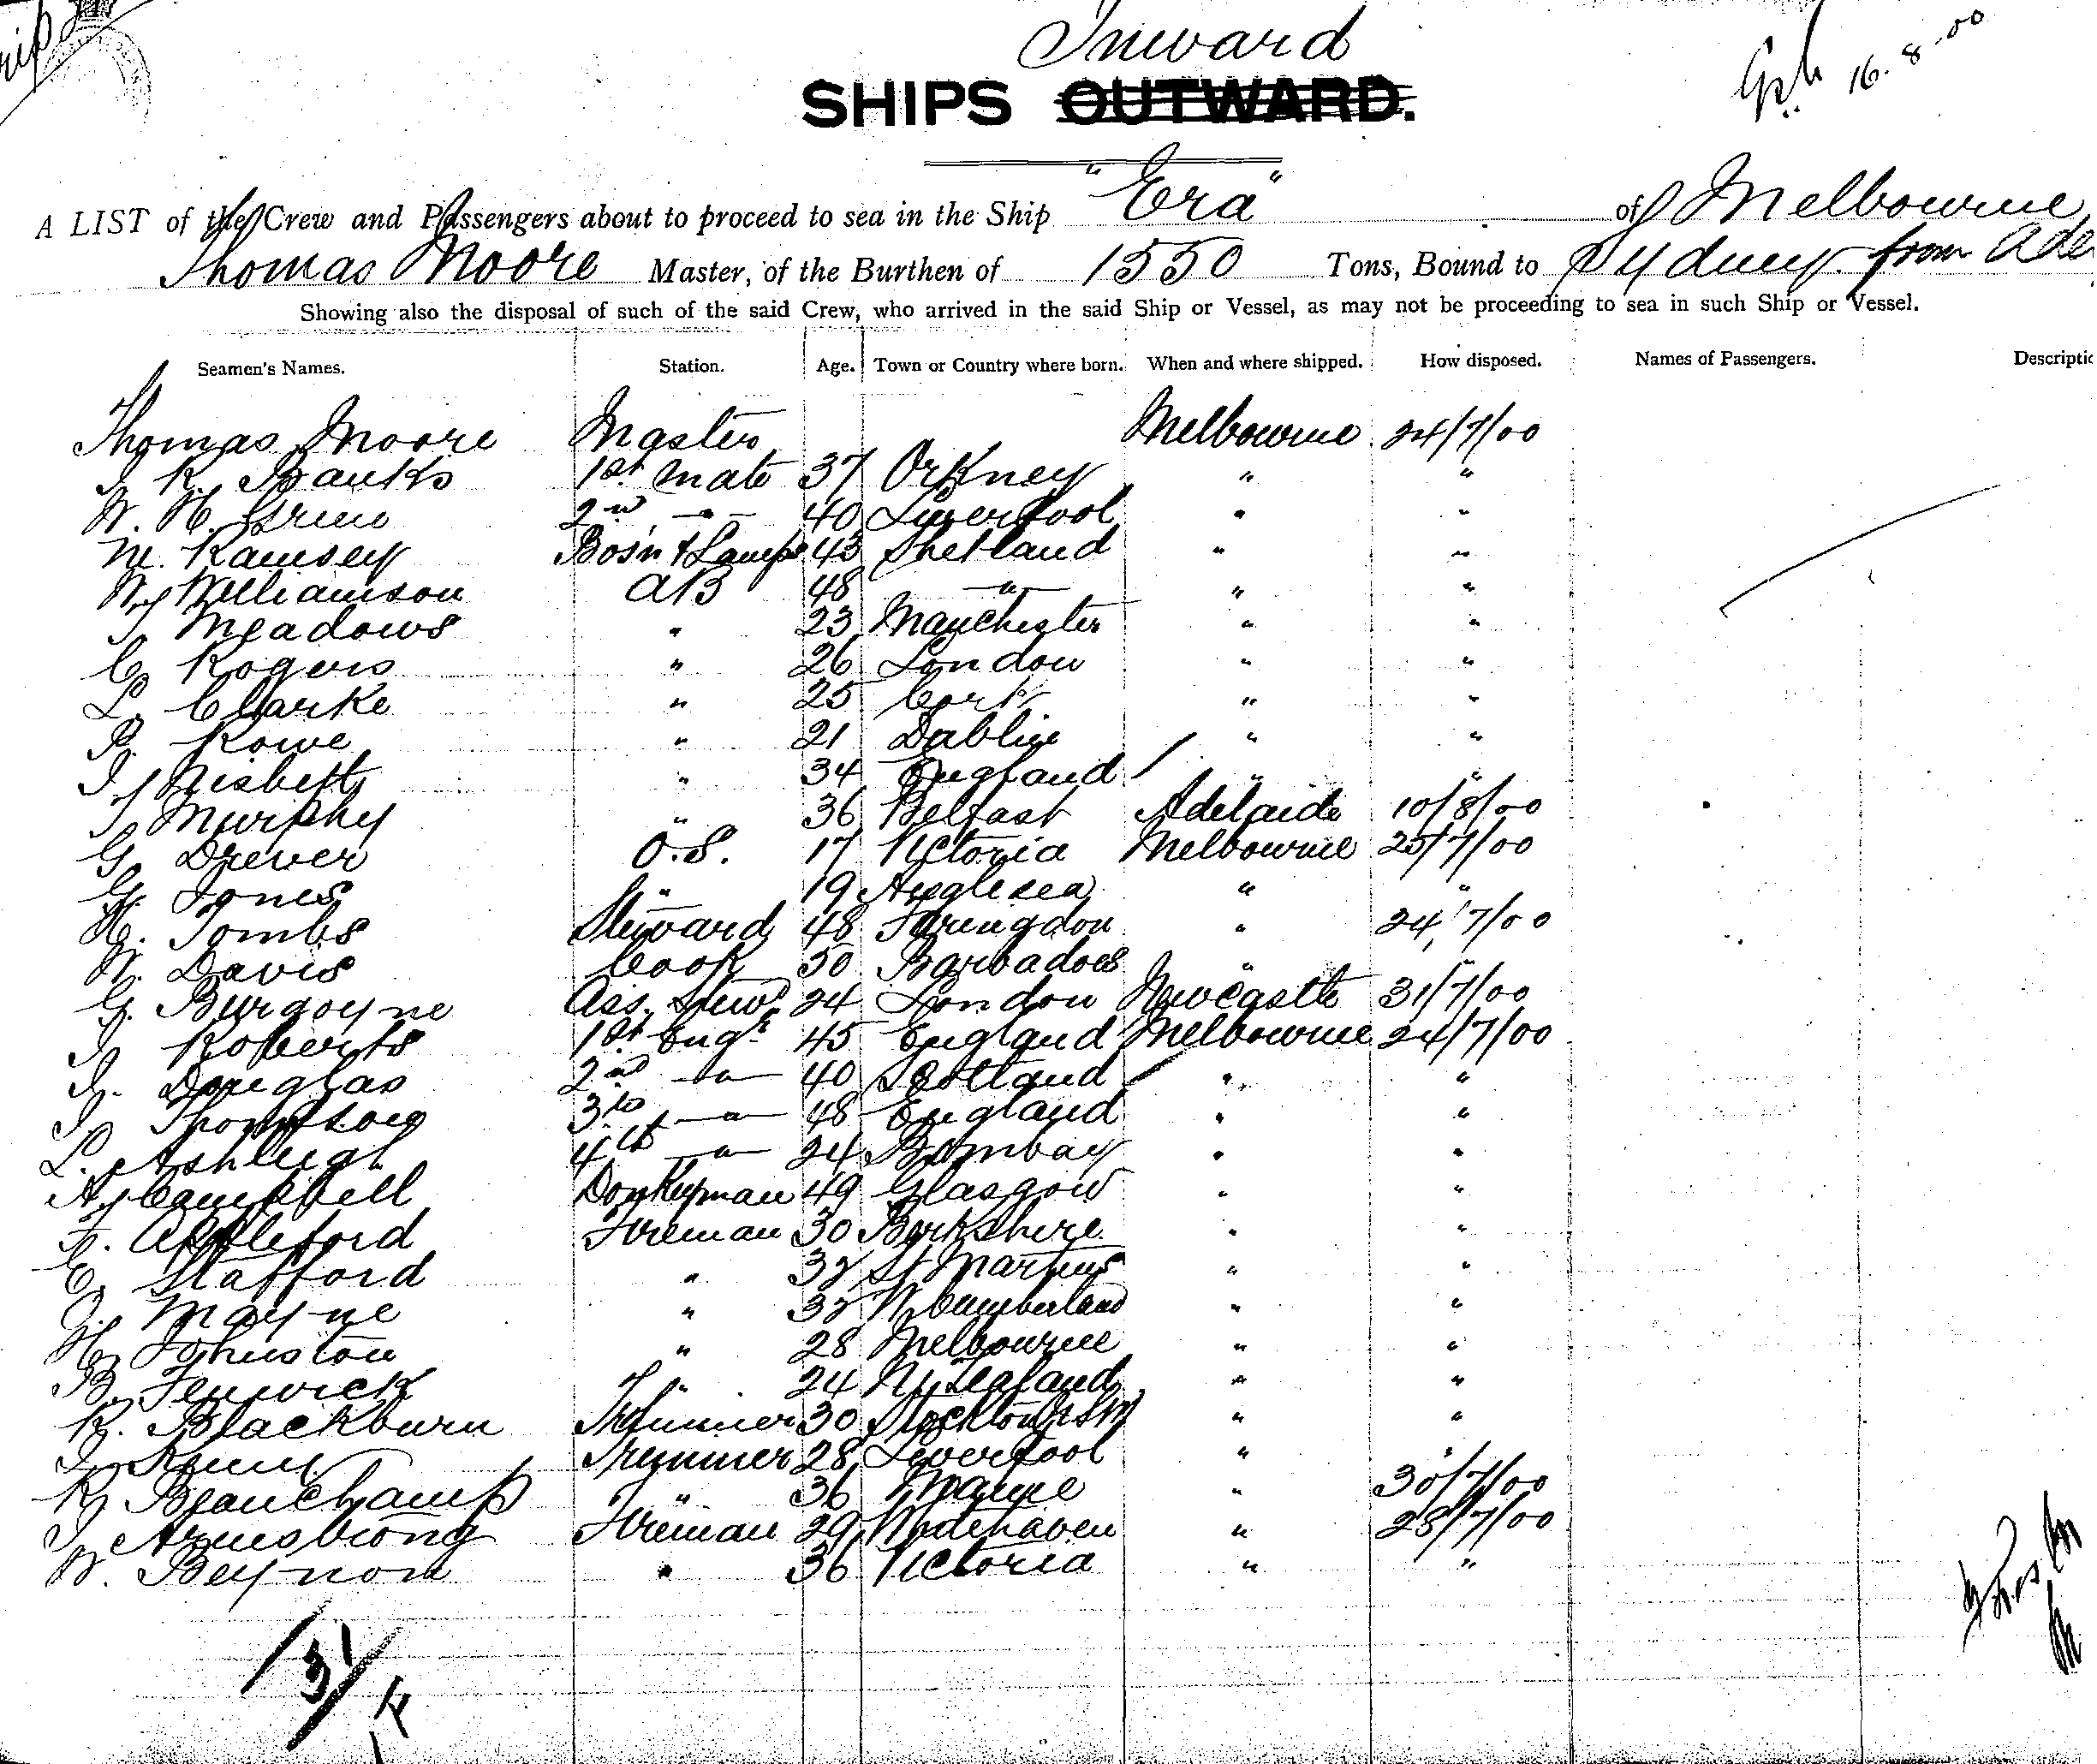 Inward
SHIPS OUTWARD.
16.8.00
A LIST of the Crew and Passengers about to proceed to sea in the Ship "Era" of Melbourne
Thomas Moore Master, of the Burthen of 1550 Tons, Bound to Sydney from Ade
Showing also the disposal of such of the said Crew, who arrived in the said Ship or Vessel, as may not be proceeding to sea in such Ship or Vessel.
Seamen's Names. Station. Age. Town or Country where born. When and where shipped. How disposed. Names of Passengers. Descriptio
Thomas Moore Master Melbourne 24/7/00
J. K. Banks 1st Mate 37 Orkney " "
W. H. 2nd " 40 Liverpool " "
M. Ramsey Bos'n & Lamps 43 Shetland " "
W. Williamson AB 48 " " "
T. Meadows " 23 Manchester " "
C. Rogers " 26 London " "
L. Clarke " 25 Cork " "
P. Rowe " 21 Dublin " "
J. Nisbett " 34 England " "
T. Murphy " 36 Belfast Adelaide 10/8/00
G. Drever O.S. 17 Victoria Melbourne 25/7/00
G. Jones " 19 Anglesea " "
H. Tombs Steward 48 Faringdon " 24/7/00
W. Davis Cook 50 Barbadoes " "
G. Burgoyne Ass. Stewd 24 London Newcastle 31/7/00
J. Roberts 1st Engr 45 England Melbourne 24/7/00
J. Douglas 2nd " 40 Scotland " "
J. Thompson 3rd " 48 England " "
L. Ashleigh 4th " 24 Bombay " "
A. Campbell Donkeyman 49 Glasgow " "
F. Appleford Fireman 30 Berkshire " "
E. Stafford " 32 St Martins " "
O. Mayne " 32 N. Cumberland " "
H. Johnston " 28 Melbourne " "
B. Fenwick " 24 N. Zealand " "
R. Blackburn Trimmer 30 Stockton " "
J. Trimmer 28 Liverpool " "
R. Beauchamp " 36 " 30/7/00
J. Armstrong Fireman 29 " 28/7/00
W. Beynon " 36 Victoria " "
31